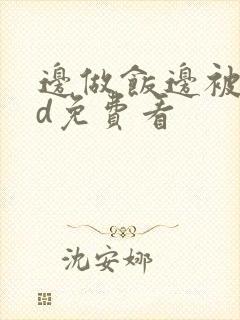 邊做飯邊被
d免費看
沈安娜